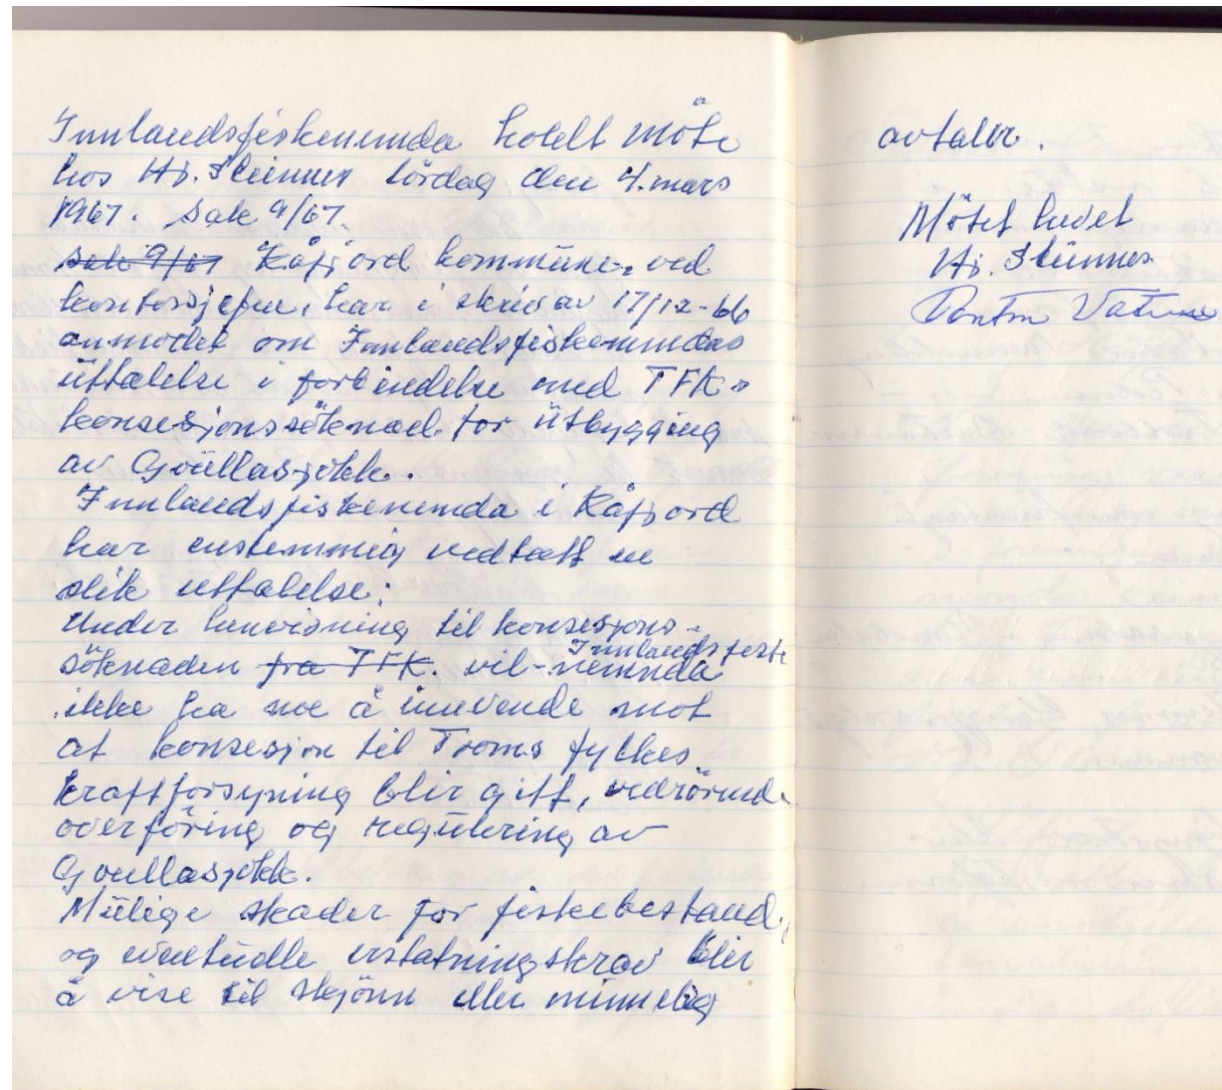 Innlandsfiskenemda holdt möte
hos Hj. Steinnes lördag den 4. mars
1967. Sak 9/67
sak 9/67 Kåfjord kommune, ved
kontorsjefen, har i skriv av 17/12-66
anmodet om Innlandsfiskenemdas
üttalelse i forbindelse med TFK.s
konsesjonssöknad for ütbygging
av Goüllasjökk.
Innlandsfiskenemda i Kåfjord
har enstemmig vedtatt en
slik uttalelse:
Under henvisning til konsesjons-
söknaden fra TFK. vil Innlandsfiske-
nemnda
ikke ha noe å innvende mot
at konsesjon til Troms fylkes
kraftforsyning blir gitt, vedrörende
overföring og regülering av
Goullasjökk.
Mülige skader for fiskebestand,
og eventüelle erstatningskrav blir
å vise til skjönn eller minnelig
avtaler.
Mötet hevet
Hj. Steinnes